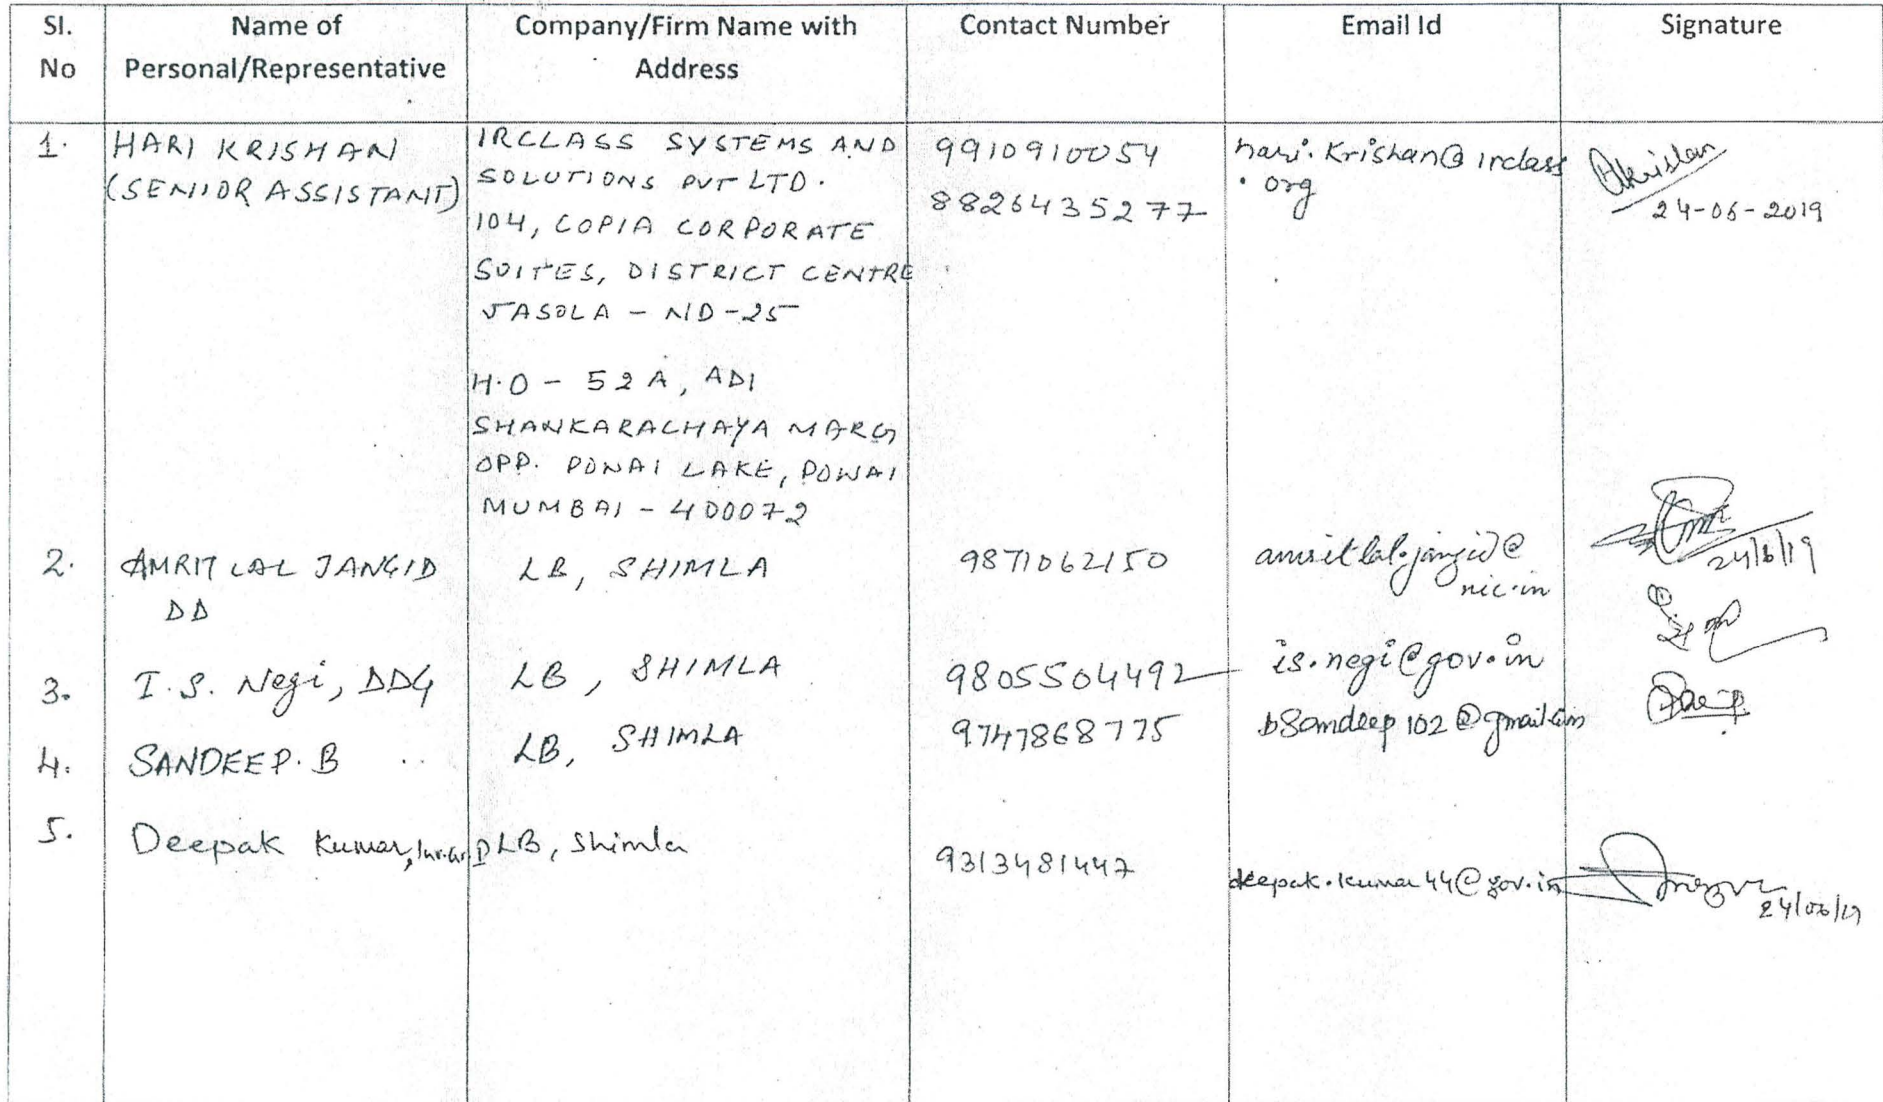 Sl. No
Name of Personal/Representative
Company/Firm Name with Address
Contact Number
Email Id
Signature
1.
HARI KRISHAN
(SENIOR ASSISTANT)
IRCLASS SYSTEMS AND
SOLUTIONS PVT LTD.
104, COPIA CORPORATE
SUITES, DISTRICT CENTRE
JASOLA - ND-25
H.O - 52A, ADI
SHANKARACHAYA MARG
OPP. POWAI LAKE, POWAI
MUMBAI - 400072
9910910054
8826435277
hari.krishan@irclass
.org
24-06-2019
2.
AMRIT LAL JANGID
DD
LB, SHIMLA
9871062150
amritlal.jangid@
nic.in
24/6/19
3.
I.S. Negi, DDG
LB, SHIMLA
9805504492
is.negi@gov.in
4.
SANDEEP.B
LB, SHIMLA
9747868775
bsandeep102@gmail.com
5.
Deepak Kumar,
LB, Shimla
9313481447
deepak.kumar44@gov.in
24/06/19